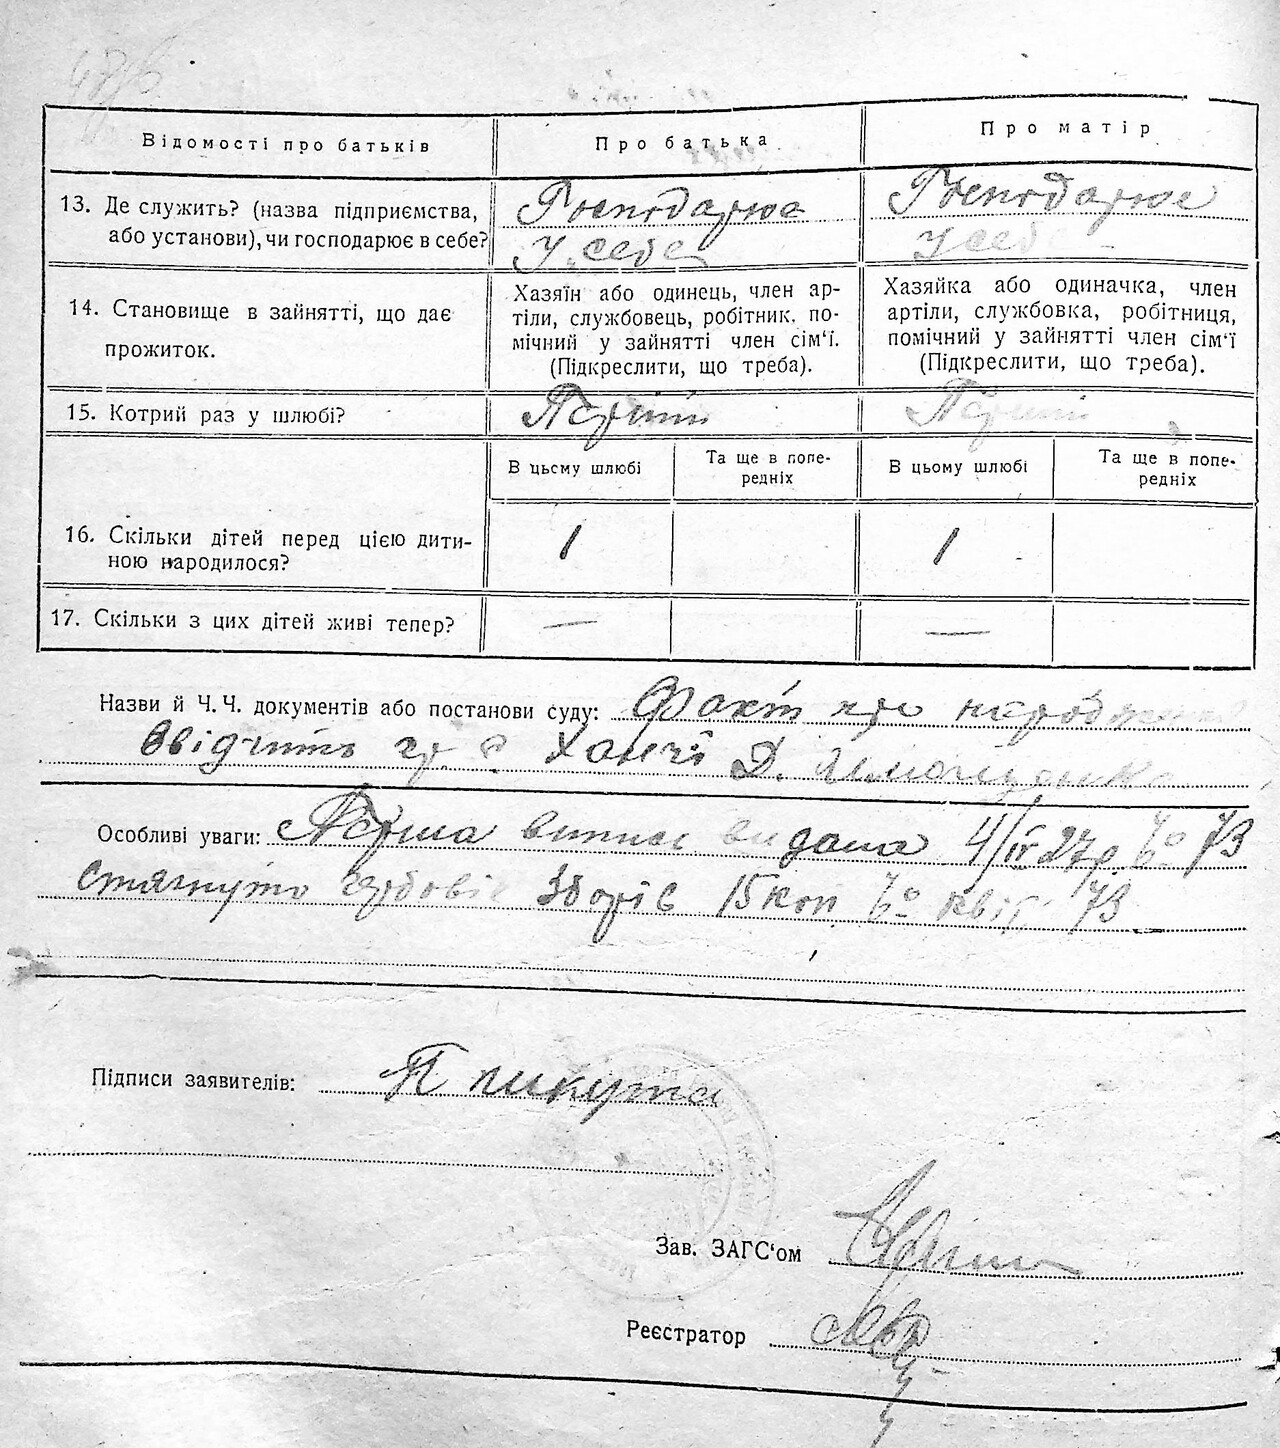 Відомості про батьків
Про батька
Про матір
13. Де служить? (назва підприємства,
або установи), чи господарює в себе?
Господарює
у себе
Господарює
у себе
14. Становище в зайнятті, що дає
прожиток.
Хазяїн або одинець, член ар-
тіли, службовець, робітник. по-
мічний у зайнятті член сім‘ї.
(Підкреслити, що треба).
Хазяйка або одиначка, член
артіли, службовка, робітниця,
помічний у зайнятті член сім‘ї
(Підкреслити, що треба).
15. Котрий раз у шлюбі?
Перший
Перший
В цьому шлюбі
Та ще в попе-
редніх
В цьому шлюбі
Та ще в попе-
редніх
16. Скільки дітей перед цією дити-
ною народилося?
1
1
17. Скільки з цих дітей живі тепер?
—
—
Назви й Ч. Ч. документів або постанови суду: Факт про народження
гр. с Д.
Особливі уваги: Перша випис видана 4/IV 27р. 73
стягнуто гербовіє зборів 15 коп квіт 73
Підписи заявителів: П
Зав. ЗАГС‘ом
Реєстратор